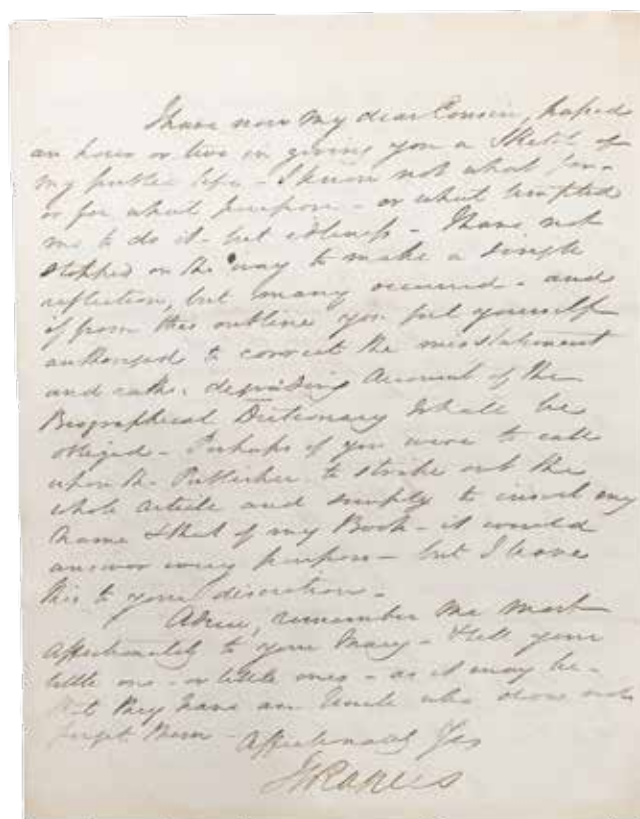 I have now my dear Cousin, passed
an hour or two in giving you a Sketch of
my public life - I know not what for -
or for what purpose - or what tempted
me to do it - but idleness - I have not
stopped on the way to make a single
reflection, but many occurred - and
if from this outline you feel yourself
authorized to correct the misstatement
and rather degrading Account of the
Biographical Dictionary I shall be
obliged - Perhaps if you were to call
upon the Publisher to strike out the
whole article and simply to insert my
Name & that of my Book - it would
answer every purpose - but I leave
this to your discretion -
Adieu, remember me most
affectionately to your Mary - & tell your
little one - or little ones - as it may be -
that they have an Uncle who does not
forget them - Affectionately Yrs